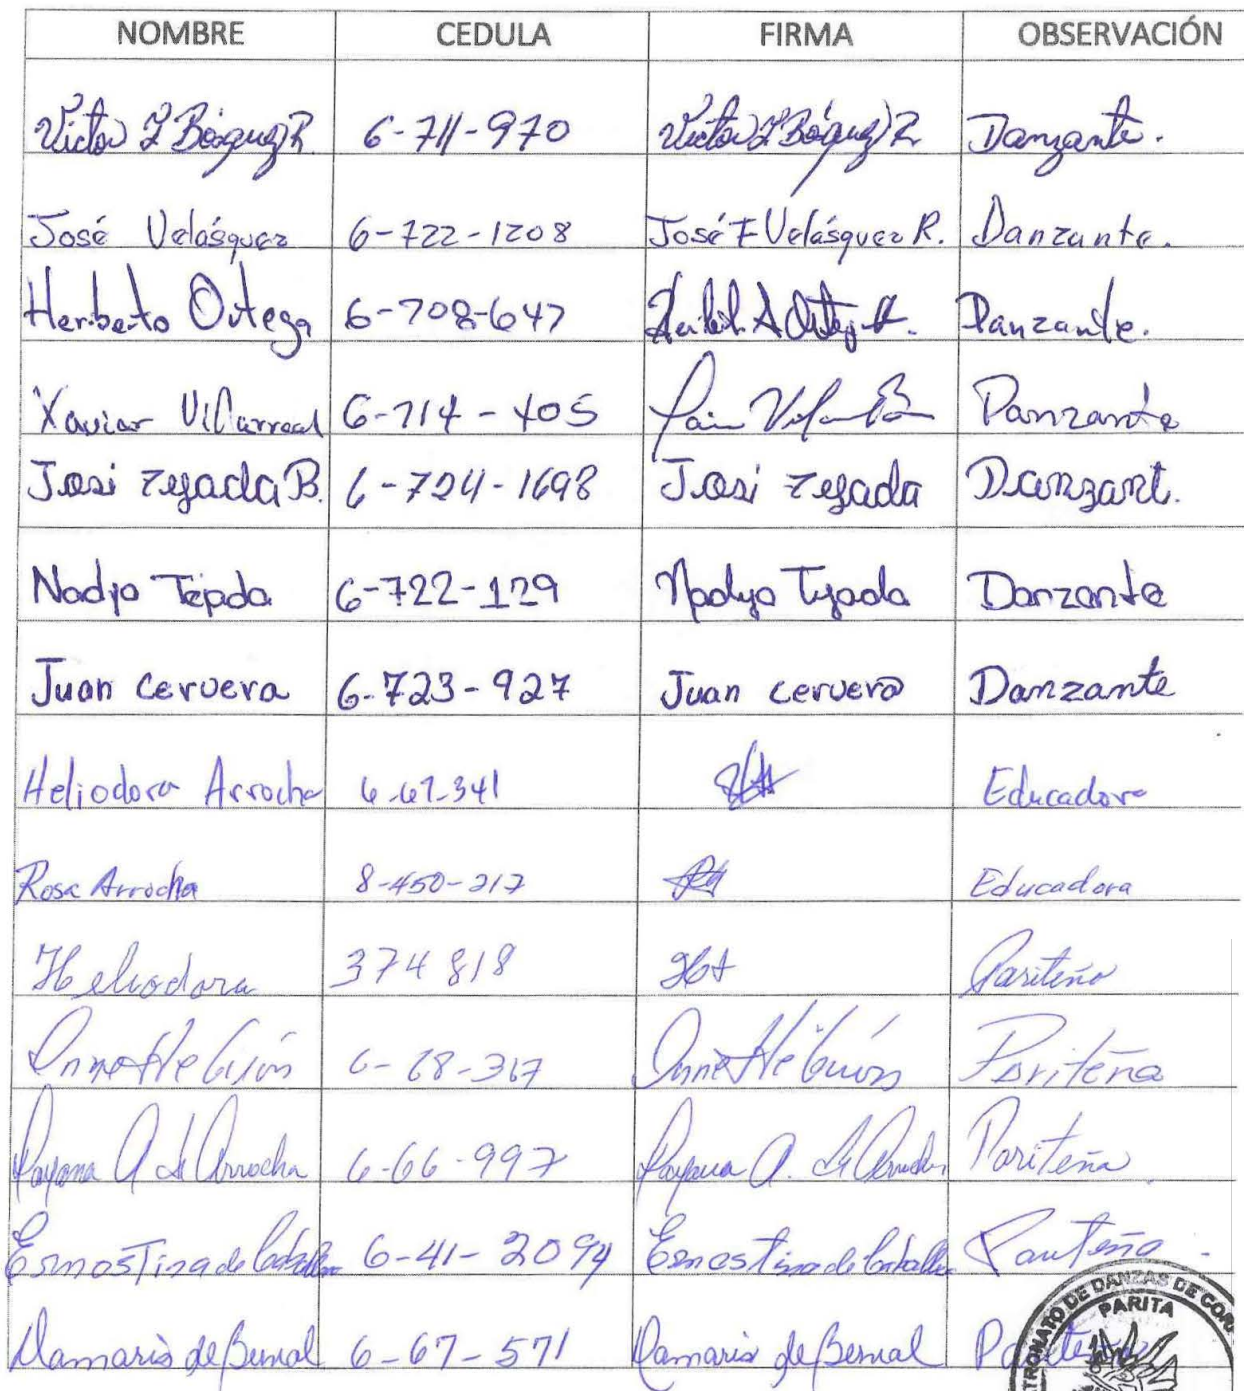 NOMBRE CEDULA FIRMA OBSERVACIÓN
Victor 6-711-970 Victor Danzante.
José Velásquez 6-722-1208 José F Velásquez R. Danzante.
Heriberto Ortega 6-708-647 Danzante.
Xavier Villarreal 6-714-405 Danzante
José Tejada B. 6-724-1698 José Tejada Danzant.
Nadya Tejada 6-722-129 Nadya Tejada Danzante
Juan Cervera 6-723-927 Juan Cervera Danzante
Heliodora Arrocha 6-67-341 Educadora
Rosa Arrocha 8-450-217 Educadora
Heliodora 374818 HA Pariteño
6-68-367 Pariteña
Dayana A de Arrocha 6-66-997 Dayana A. de Arrocha Pariteña
Ernestina de 6-41-2094 Ernestina de Pariteña.
Damaris de Bernal 6-67-571 Damaris de Bernal
DE DANZAS DE
PARITA